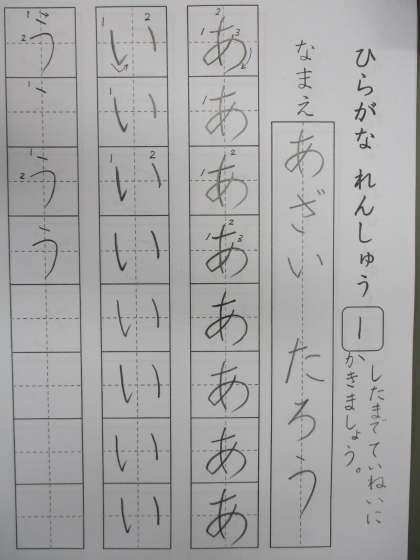 ひらがな れんしゅう 1
したまで ていねいに
かきましょう。
なまえ
あざい たろう
あ あ あ あ あ あ あ あ
い い い い い い い い
う う う